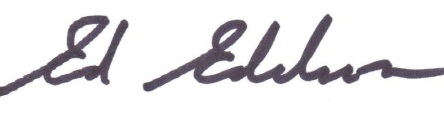 Ed Edelson